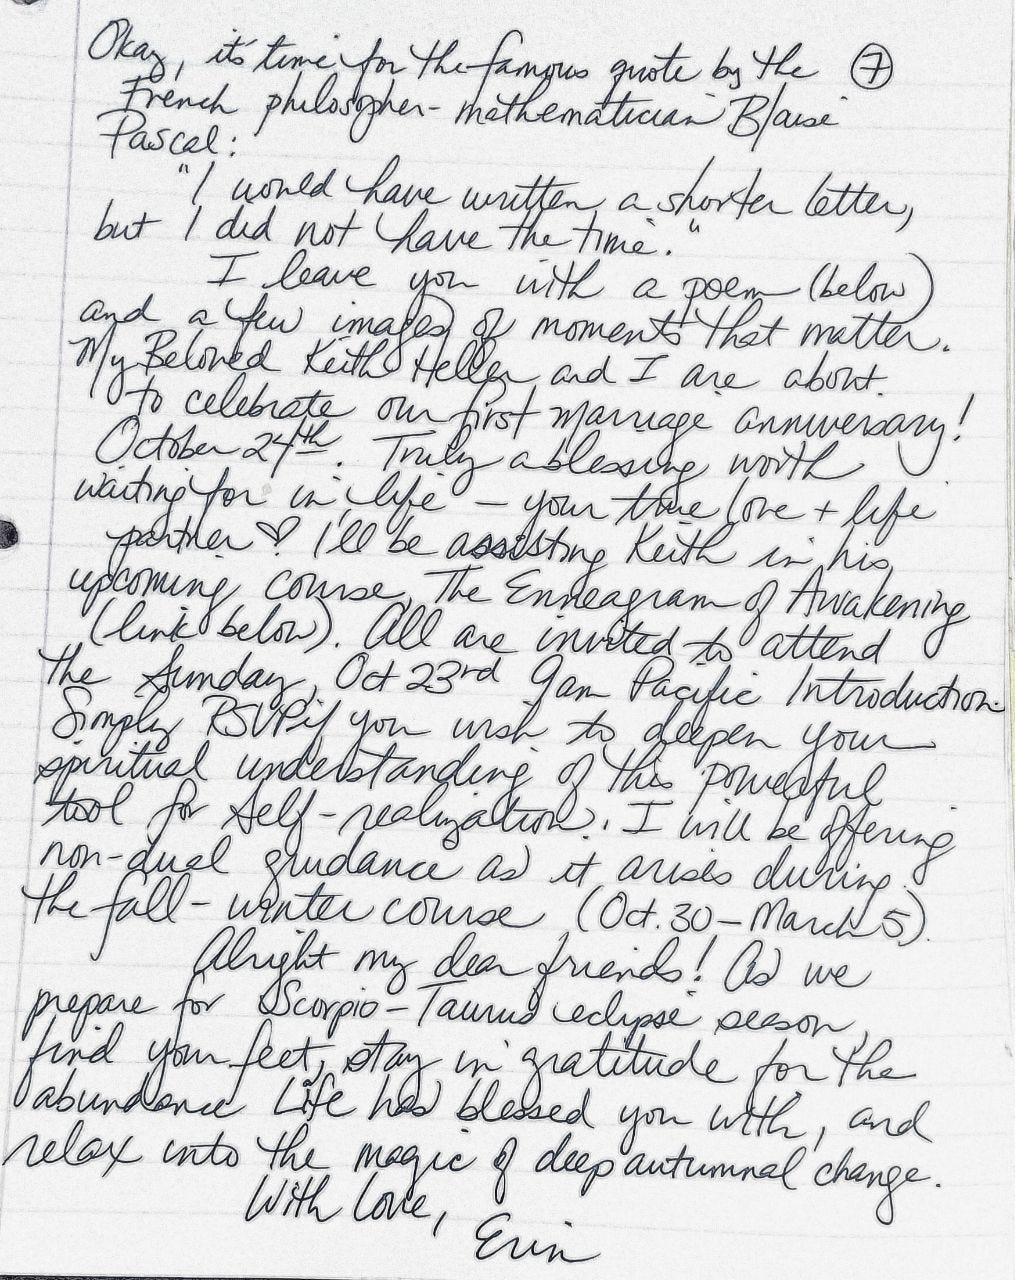 Okay, it's time for the famous quote by the ⑦
French philosopher-mathematician Blaise
Pascal:
"I would have written a shorter letter,
but I did not have the time."
I leave you with a poem (below)
and a few images of moments that matter.
My Beloved Keith Heller and I are about
to celebrate our first marriage anniversary!
October 24th. Truly a blessing worth
waiting for in life – your true love + life
partner ♡ I'll be assisting Keith in his
upcoming course, The Enneagram of Awakening
(link below). All are invited to attend
the Sunday, Oct 23rd 9am Pacific Introduction.
Simply RSVP if you wish to deepen your
spiritual understanding of this powerful
tool for Self-realization. I will be offering
non-dual guidance as it arises during
the fall-winter course (Oct. 30 – March 5).
Alright my dear friends! As we
prepare for Scorpio-Taurus eclipse season,
find your feet, stay in gratitude for the
abundance Life has blessed you with, and
relax into the magic of deep autumnal change.
With love,
Erin